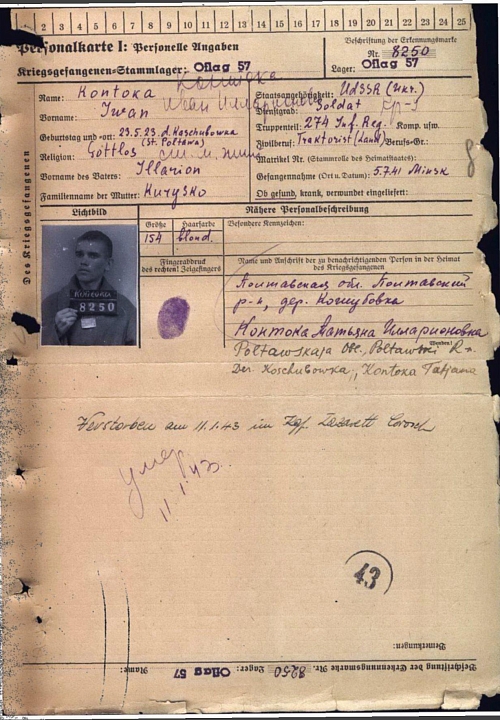 1 2 3 4 5 6 7 8 9 10 11 12 13 14 15 16 17 18 19 20 21 22 23 24 25
Personalkarte I: Personelle Angaben
Beschriftung der Erkennungsmarke
Nr. 8250
Kriegsgefangenen-Stammlager: Oflag 57
Lager: Oflag 57
Des Kriegsgefangenen
Name: Kontoka
Vorname: Iwan
Иван Илларионович
Geburtstag und -ort: 23.5.23. d. Koschubowka
(St. Poltawa)
Religion: Gottlos
Vorname des Vaters: Illarion
Familienname der Mutter:
Staatsangehörigkeit: UdSSR (Ukr.)
Dienstgrad: Soldat
Truppenteil: 274 Inf. Reg. Komp. usw.
Zivilberuf: Traktorist (Land) Berufs-Gr.:
Matrikel Nr. (Stammrolle des Heimatstaates):
Gefangennahme (Ort u. Datum): 5.7.41 Minsk
Ob gesund, krank, verwundet eingeliefert:
Lichtbild
Nähere Personalbeschreibung
Größe
Haarfarbe
Besondere Kennzeichen:
154
blond.
Fingerabdruck
des rechten! Zeigefingers
Name und Anschrift der zu benachrichtigenden Person in der Heimat
des Kriegsgefangenen
8250
Полтавская обл. Полтавский
р-н, дер. Кошубовка
Контока Татьяна Илларионовна
Poltawskaja Obl., Poltawski R-n.
Der. Koschubowka, Kontoka Tatjana
Verstorben am 11.1.43 im Kgf. Lazarett
умер
11.1.43.
43
Bemerkungen:
Beschriftung der Erkennungsmarke Nr. 8250 Lager: Oflag 57 Name: